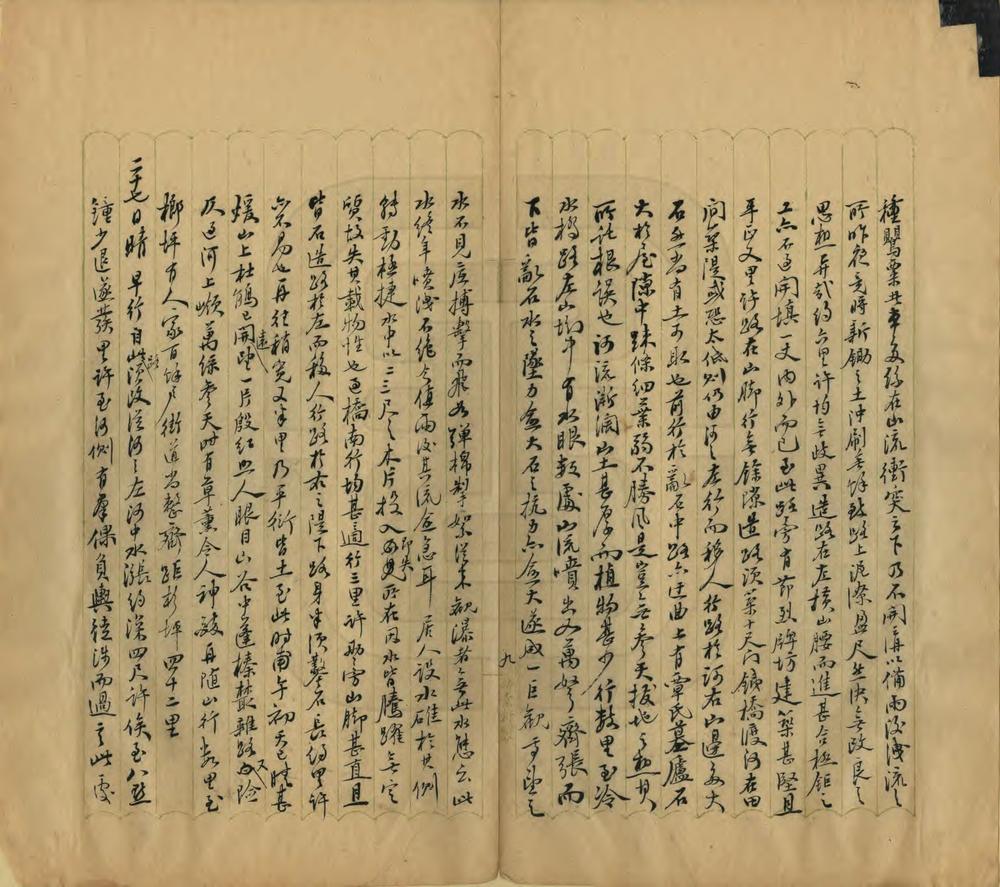 種罌粟其本多殖在山流衝突之下乃不開溝以備雨後洩流之
所昨夜竟時新鋤之土沖刷無餘致路上泥潦盈尺生決無改良之
思想弄哉約六里許均無歧異造路在左橫山腰而進甚合極鉅之
工亦不過開填一丈內外而已至此路旁有節烈牌坊建築甚堅且
平正又里許路在山腳行無餘隙造路須築十尺門鐵橋渡河在田
間築堤或恐太低則仍由河之左行而移人行路於河右山邊多大
石無當有土可取也前行於亂石中路亦迂曲上有覃氏墓廬石
大於屋隙中珠條細葉弱不勝風是豈無參天拔地之想其
所託根誤也河流漸濶山土甚厚而植物甚少行數里至冷
水橋路左山坳中有水眼数處山流噴出如萬弩齊張而
下皆亂石水之墜力愈大石之抗力亦愈大遂成一巨觀乎望之
九
水不見底搏擊而飛如彈棉掣絮從來觀瀑者無此水態云此
水終年噴洩不絕今值雨後其流愈急耳居人設水碓於其側
轉動極捷水中以二三尺之木片投入即失所在因水皆騰躍無定
質故失其載物性也過橋南行均甚適行三里許那旁山腳甚直且
皆石造路於左而移人行路於右之堤下路身半須鑿石長約里許
亦不易也再往稍寬又半里乃平衍皆土至此時甫午初天已晴甚
煖山上杜鵑已開遠望一片殷紅照人眼目山谷中蓬榛叢雜路又險
及過河上嶺萬綠參天時有草薰令人神豁再隨山行数里至
榔坪有人家百餘戶街道尚整齊距彭坪四十二里
二十七日晴早行自此路改從河之左河中水漲約深四尺許俟至八點
鐘少退遂發里許至河側有羣倮負輿徒涉而過之此處